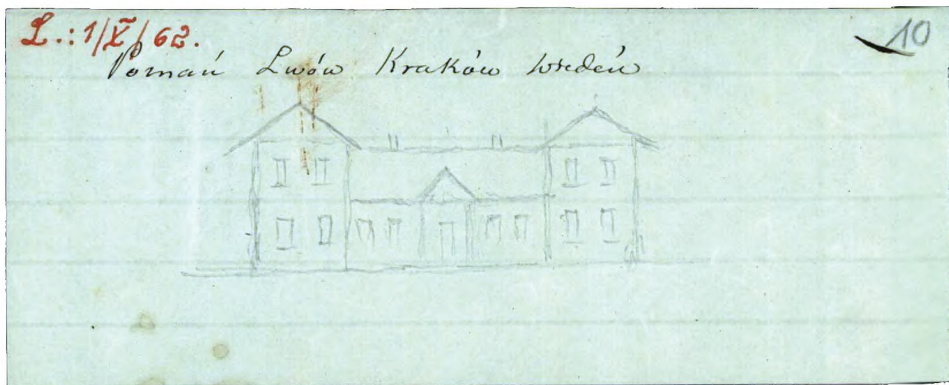 L.: 1/X/62.
10
Poznań Lwów Kraków Wiedeń